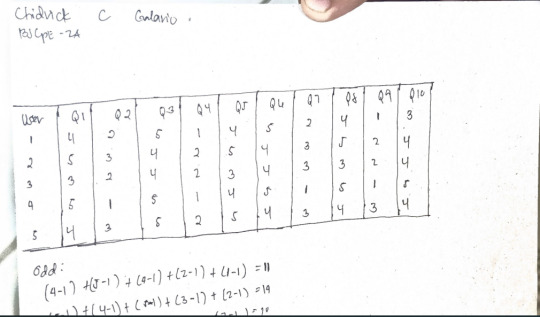 Chidvick C Gulario.
BSCpE - 2A
User Q1 Q2 Q3 Q4 Q5 Q6 Q7 Q8 Q9 Q10
1 4 2 5 1 4 5 2 4 1 3
2 5 3 4 2 5 4 3 5 2 4
3 3 2 4 2 3 4 3 3 2 4
4 5 1 5 1 4 5 1 5 1 5
5 4 3 5 2 5 4 3 4 3 4
Odd:
(4-1) + (5-1) + (4-1) + (2-1) + (1-1) = 11
+ (4-1) + (5-1) + (3-1) + (2-1) = 14